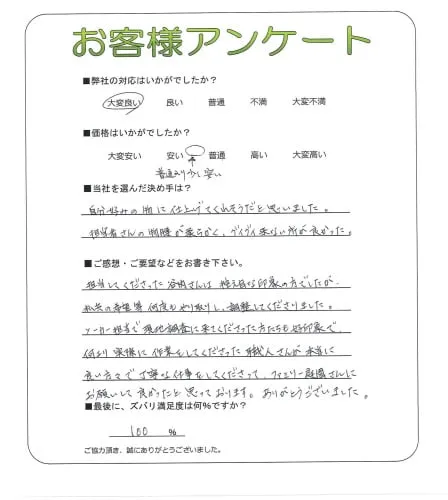 お客様アンケート
■弊社の対応はいかがでしたか?
大変良い 良い 普通 不満 大変不満
■価格はいかがでしたか?
大変安い 安い 普通 高い 大変高い
普通より少し安い
■当社を選んだ決め手は?
自分好みの物に仕上げてくれそうだと思いました。
担当者さんの物腰が柔らかく、グイグイ来ない所が良かった。
■ご感想・ご要望などをお書き下さい。
担当してくださった さんは控え目な印象の方でしたが、
私共の希望等何度もやり取りし、調整してくださりました。
メーカー担当で現地調査に来てくださった方たちも好印象で、
何より実際に作業をしてくださった職人さんが本当に
良い方々で丁寧な仕事をしてくださって、フェリー庭園さんに
お願いして良かったと思っております。ありがとうございました。
■最後に、ズバリ満足度は何%ですか?
100 %
ご協力頂き、誠にありがとうございました。